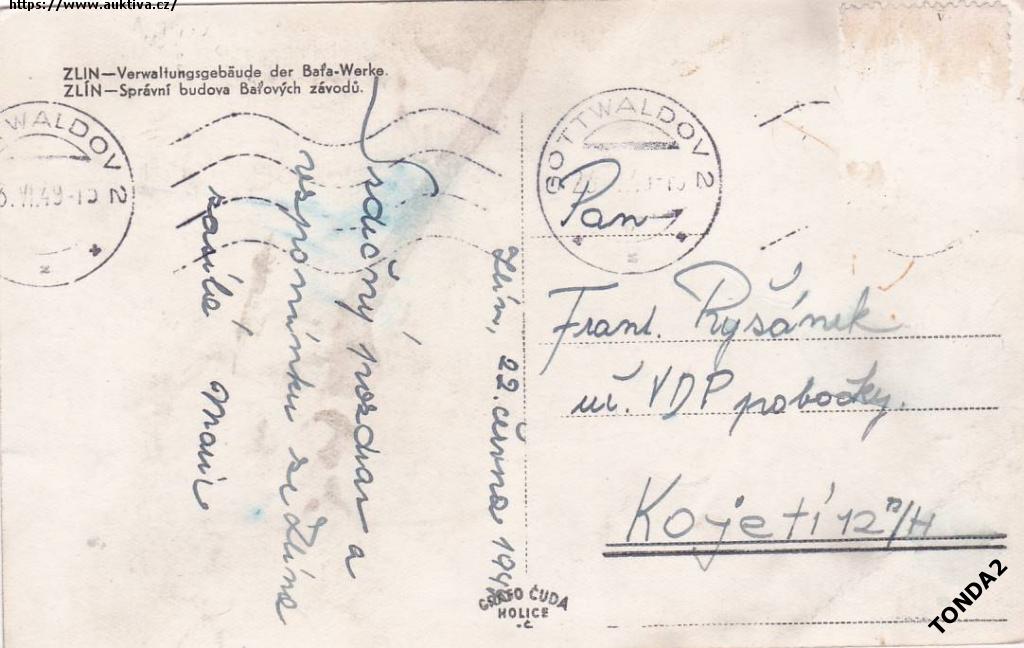 https://www.auktiva.cz/
ZLIN—Verwaltungsgebäude der Baťa-Werke.
ZLÍN—Správní budova Baťových závodů.
GOTTWALDOV 2
WALDOV 2
VI.49-10
Srdečný pozdrav a
vzpomínku ze Zlína
zasílá Marie
Zlín, 22. června 194
Pan
Frant. Ryšánek
úř. VDP pobočky.
Kojetí 12 n/H
GRAFO ČUDA
HOLICE
-č
TONDA2